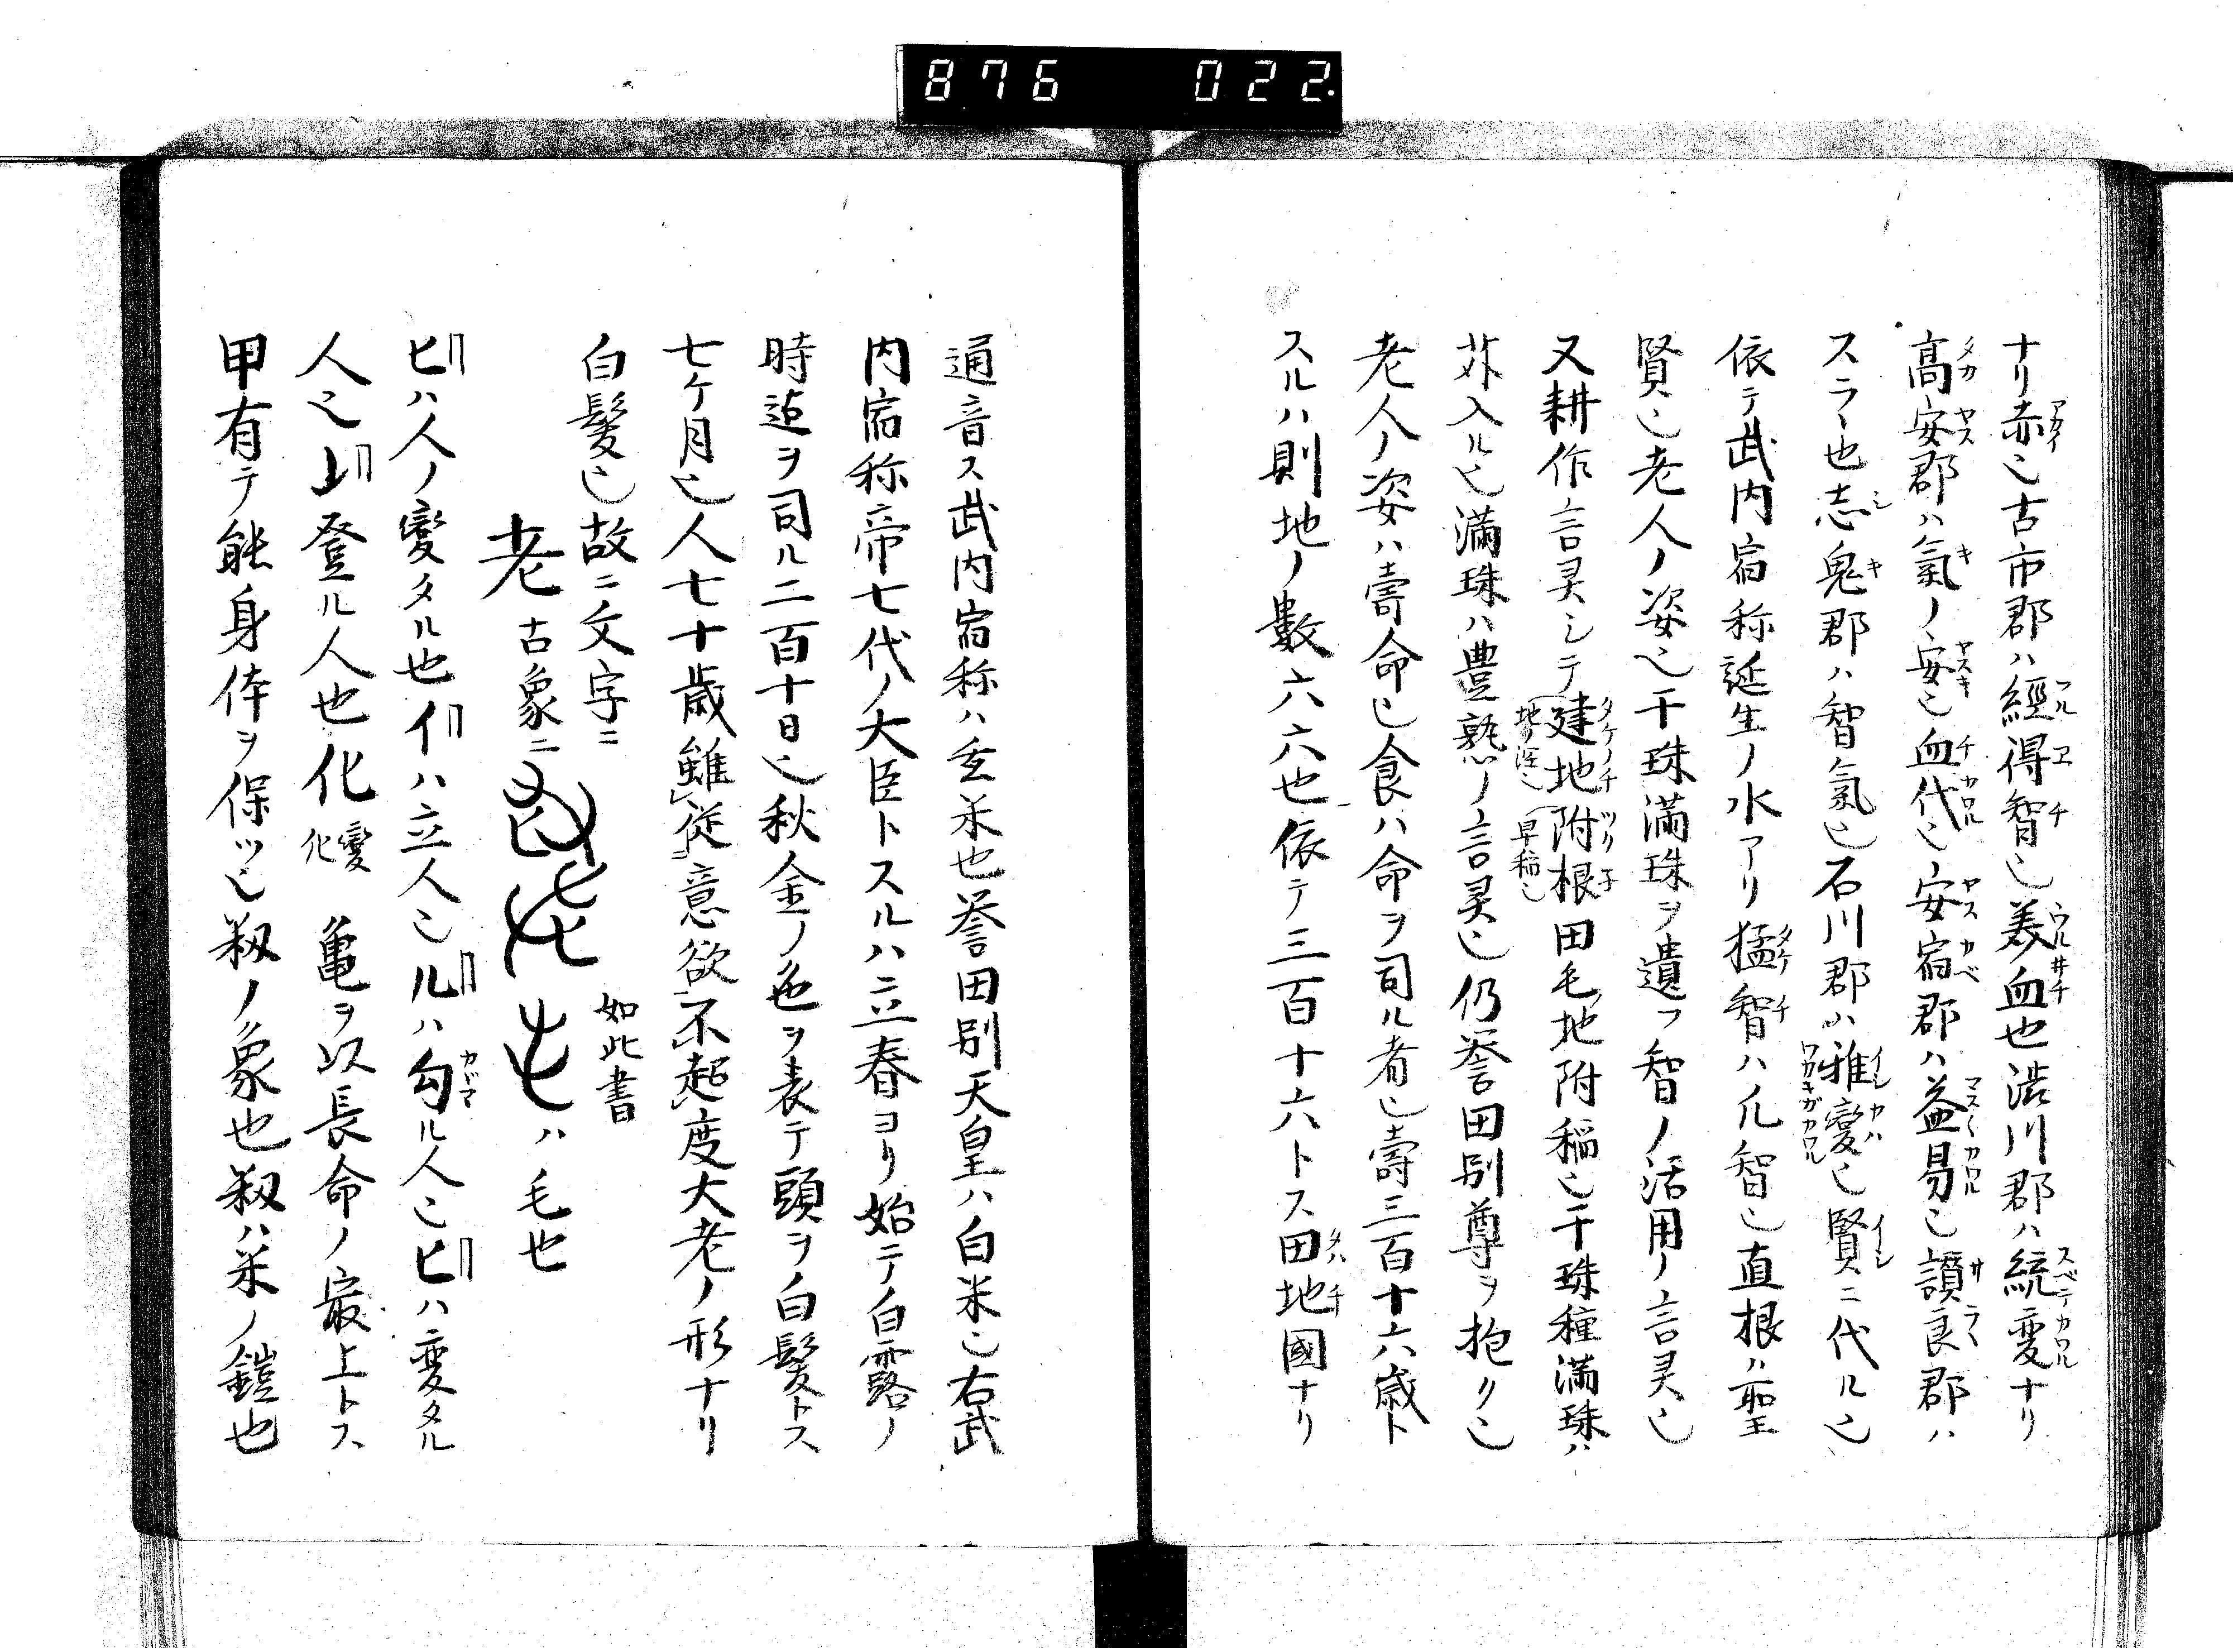 876 022.
ナリ赤也古市郡ハ經得智也美血也渋川郡ハ統変ナリ
髙安郡ハ氣ノ安也血代也安宿郡ハ益易也讃良郡ハ
スラ〳〵也志鬼郡ハ智氣也石川郡ハ雅變也賢ニ代ル也
依テ武内宿称誕生ノ水アリ猛智ハ爪智也直根ハ聖
賢也老人ノ姿也干珠満珠ヲ遺フ智ノ活用ノ言灵也
又耕作言灵シテ建地附根田毛地附稲也干珠種満珠ハ
外入ル也満珠ハ豊熟ノ言灵也仍誉田別尊ヲ抱ク也
老人ノ姿ハ壽命也食ハ命ヲ司ル者也壽三百十六歳ト
スルハ則地ノ數六六六也依テ三百十六トス田地國ナリ
通音ス武内宿称ハ玄米也誉田別天皇ハ白米也右武
内宿称帝七代ノ大臣トスルハ立春ヨリ始テ白露ノ
時迠ヲ司ル二百十日也秋金ノ色ヲ表テ頭ヲ白髪トス
七ケ月也人七十歳雖從意欲不起度大老ノ形ナリ
白髪也故ニ文字ニ
老 古象ニ 如此書 ハ毛也
ヒハ人ノ變タル也イハ立人也ルハ勾ル人也ヒハ変タル
人也上登ル人也化 變化 亀ヲ以長命ノ最上トス
甲有テ能身体ヲ保ツ也籾ノ象也籾ハ米ノ鎧也